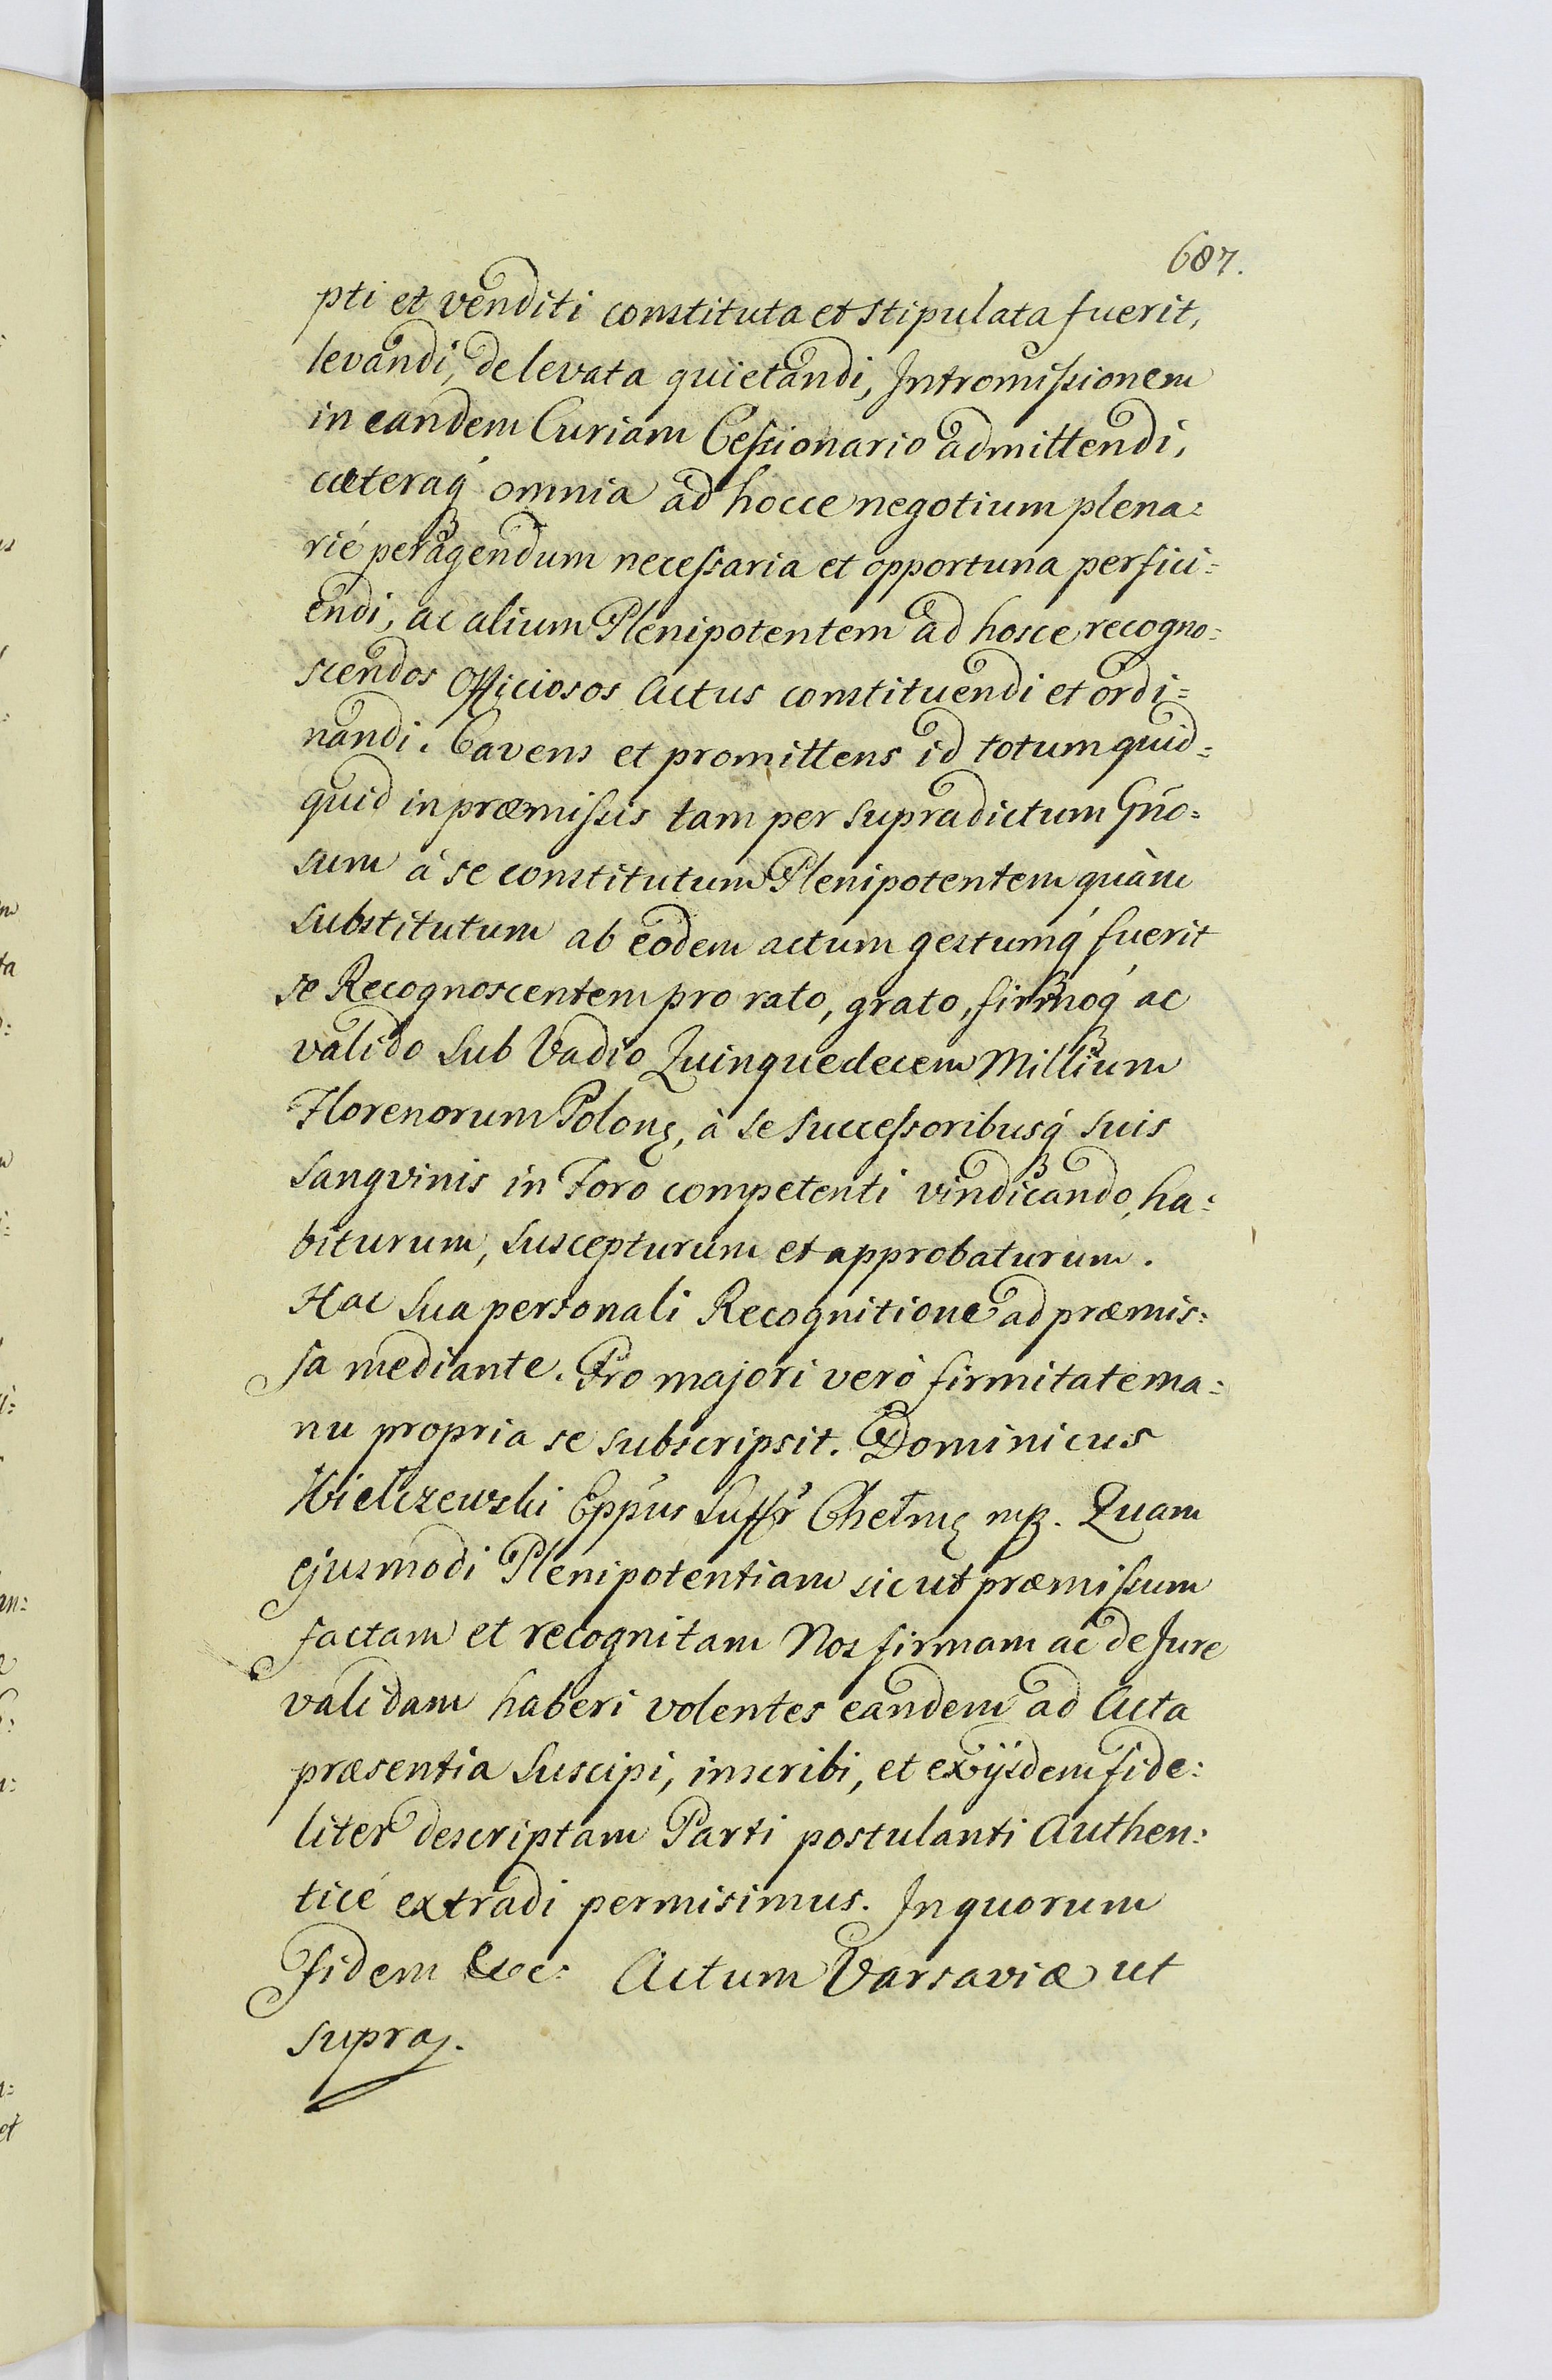 687.
pti et venditi constituta et stipulata fuerit,
levandi, de levata quietandi, Intromissionem
in eandem Curiam Cessionario admittendi,
cæteraq́ omnia ad hocce negotium plena:
rié peragendum necessaria et opportuna perfici:
endi, ac alium Plenipotentem ad hosce recogno:
scendos Officiosos Actus constituendi et ordi=
nandi. Cavens et promittens id totum quid=
quid in præmissis tam per supradictum Gńo:
sum à se constitutum Plenipotentem quàm
substitutum ab eodem actum gestumq́ fuerit
se Recognoscentem pro rato, grato, firmoq́ ac
valido sub Vadio Quinquedecem Millium
Florenorum Polonę, à se successoribusq́ suis
sangvinis in Foro competenti vindicando, ha:
biturum, suscepturum et approbaturum.
Hac sua personali Recognitione ad præmis:
sa mediante. Pro majori verò firmitate ma:
nu propria se subscripsit. Dominicus
Kiełczewski Epṕus Suffŕ Chełmę mp. Quam
ejusmodi Plenipotentiam sicut præmissum
factam et recognitam Nos firmam ac de Jure
validam haberi volentes eandem ad Acta
præsentia suscipi, inscribi, et ex ijsdem fide:
liter descriptam Parti postulanti Authen:
ticé extradi permisimus. In quorum
Fidem &c: Actum Varsaviæ ut
supra.